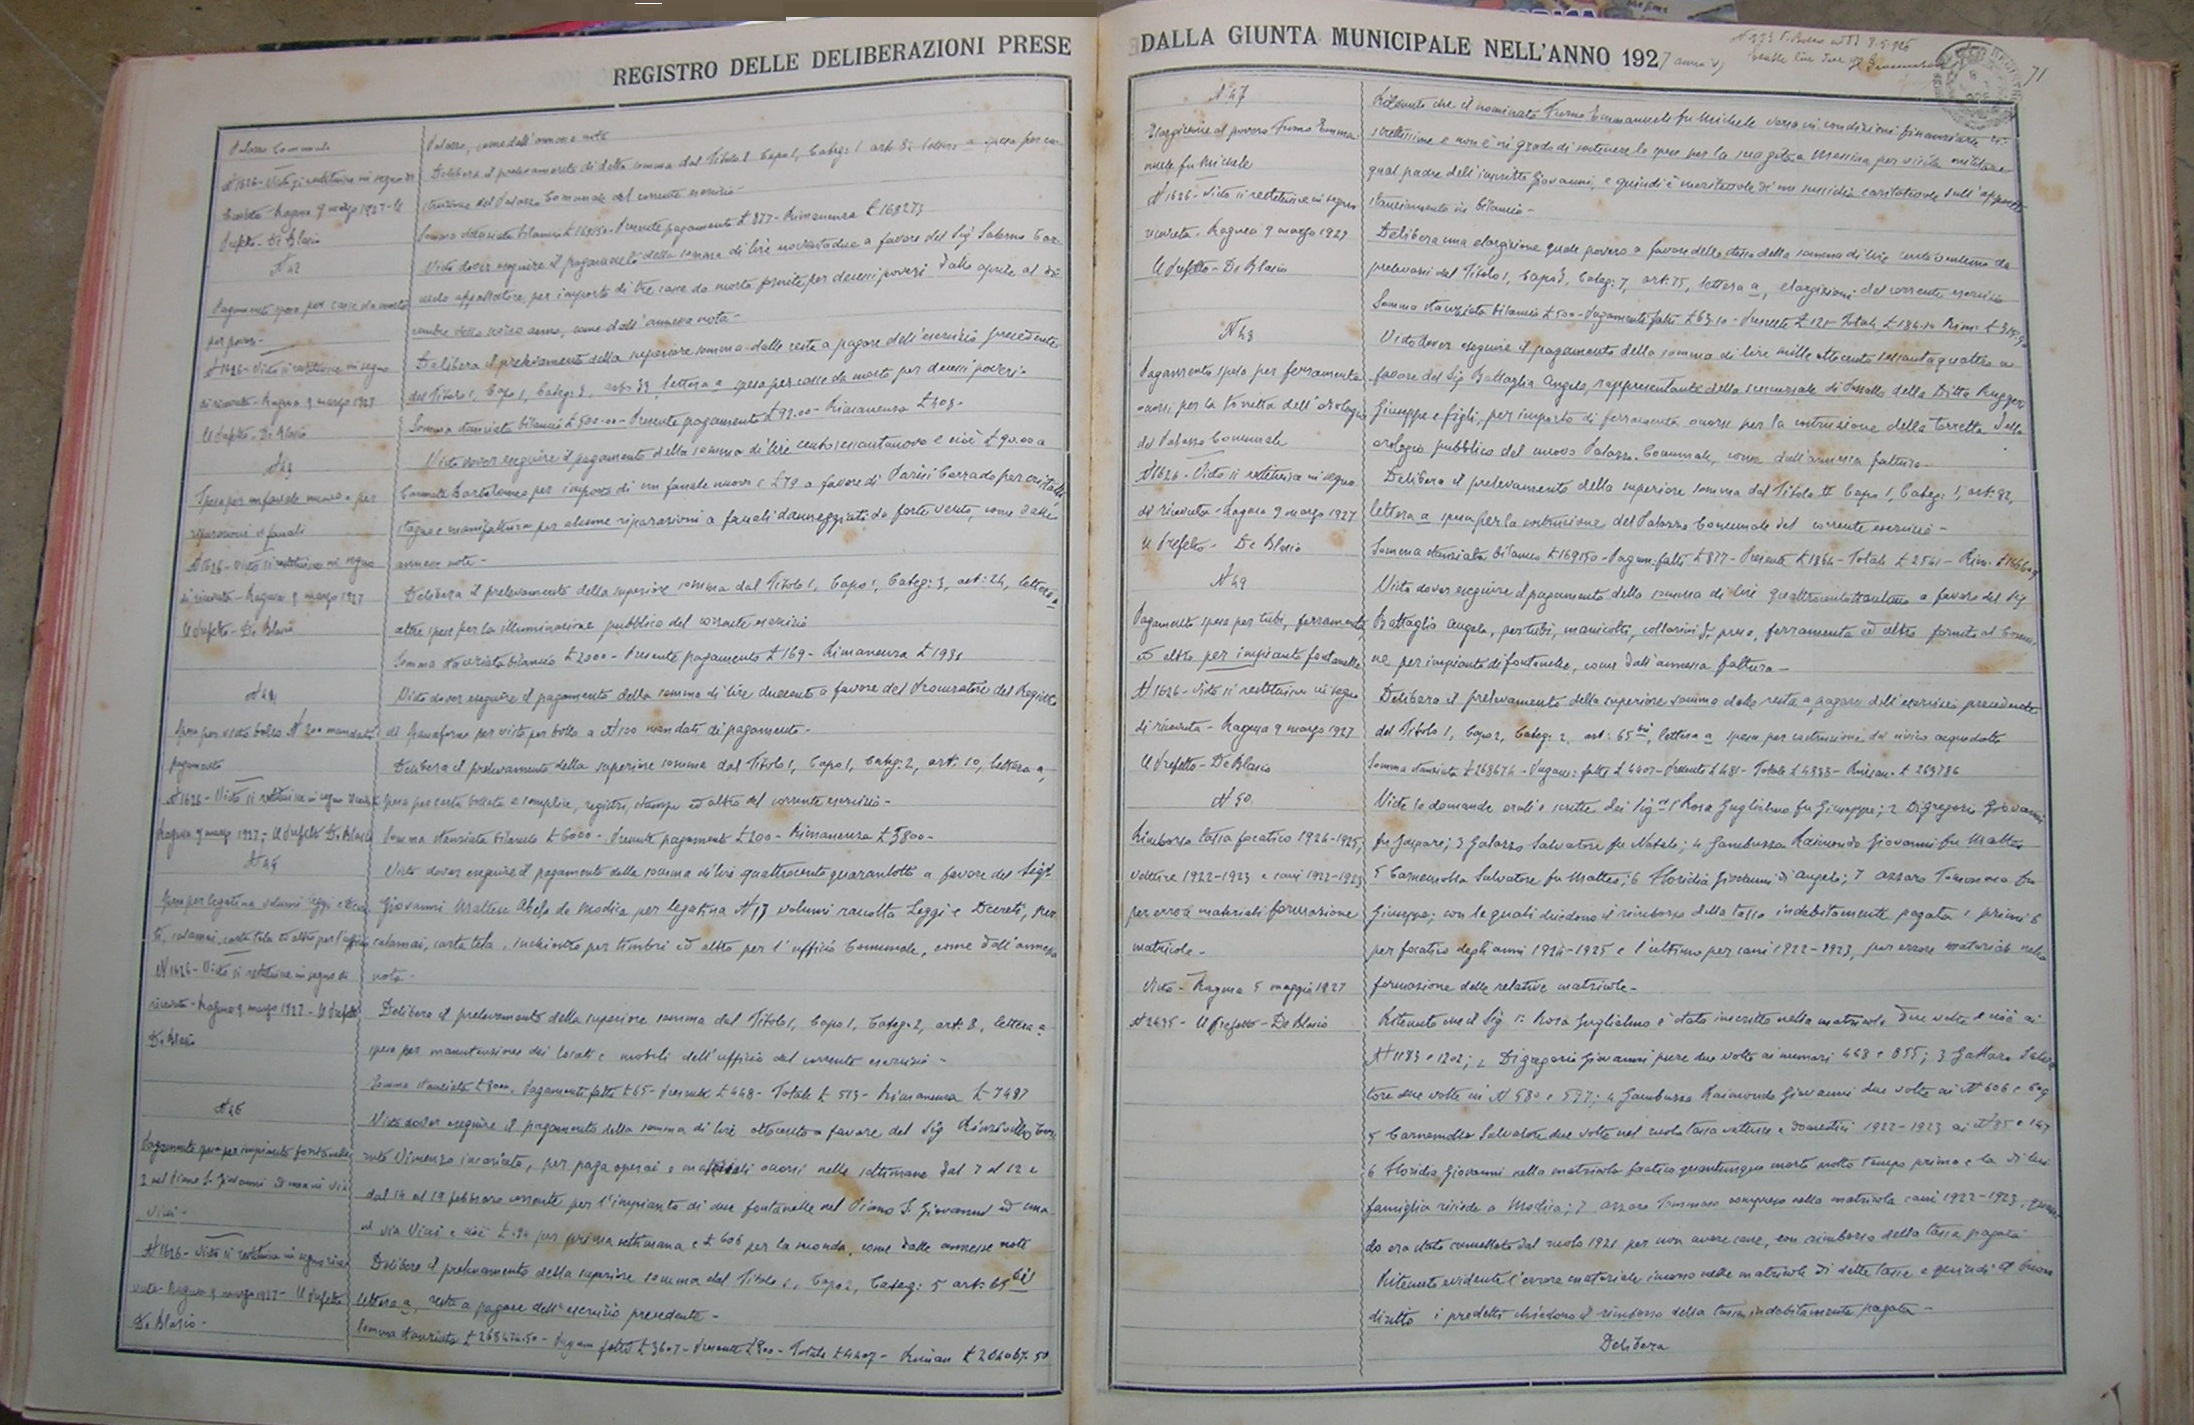 REGISTRO DELLE DELIBERAZIONI PRESE
Palazzo Comunale
N 1626 - Visto si restituisce in segno di
ricevuta - Ragusa 9 marzo 1927 - Il
Prefetto - De Blasio
N 42
Pagamento spesa per casse da morto
per poveri -
N 1626 - Visto si restituisce in segno
di ricevuta - Ragusa 9 marzo 1927
Il Prefetto - De Blasio
N 43
Spesa per un fanale nuovo e per
riparazioni ai fanali
N 1626 - Visto si restituisce in segno
di ricevuta - Ragusa 9 marzo 1927
Il Prefetto - De Blasio
N 44
Spesa per visto bollo N 200 mandati
pagamento
N 1626 - Visto si restituisce in segno
Ragusa 9 marzo 1927 - Il Prefetto De Blasio
N 45
Spesa per legatina volumi Leggi e
calamai, carta tela ed altro per l'ufficio
N 1626 - Visto si restituisce in segno di
ricevuta - Ragusa 9 marzo 1927 - Il Prefetto
De Blasio
N 46
Pagamento spesa per impianto fontanelle
2 nel Piano S. Giovanni ed una in via
Vici -
N 1626 - Visto si restituisce in segno
Ragusa 9 marzo 1927 - Il Prefetto
De Blasio -
Palazzo, come dall'annessa nota
Delibera il prelevamento di detta somma dal Titolo 2 Capo 1, Categ: 1 art: 82 lettera a spesa per co-
struzione del Palazzo Comunale del corrente esercizio -
Somma stanziata bilancio £ 169150 - Presente pagamento £ 877 - Rimanenza £ 168273
Visto dover eseguire il pagamento della somma di lire novantadue a favore del Sig Salerno
appaltatore, per importo di tre casse da morto fornite per decessi poveri dallo aprile al di-
cembre dello scorso anno, come dall'annessa nota -
Delibera il prelevamento della superiore somma dalle reste a pagare dell'esercizio precedente
del Titolo 1, Capo 1, Categ: 3, art: 39 lettera a spesa per casse da morto per decessi poveri -
Somma stanziata bilancio £ 500.00 - Presente pagamento £ 92.00 - Rimanenza £ 408 -
Visto dover eseguire il pagamento della somma di lire centosessantanove e cioè £ 90.00 a
Bartolomeo per importo di un fanale nuovo e £ 79 a favore di Parisi Corrado per cristalli
stagno e manifattura per alcune riparazioni a fanali danneggiati da forte vento, come dalle
annesse note -
Delibera il prelevamento della superiore somma dal Titolo 1, Capo 1, Categ: 3, art: 24, lettera a
altre spese per la illuminazione pubblica del corrente esercizio
Somma stanziata bilancio £ 2000 - Presente pagamento £ 169 - Rimanenza £ 1931
Visto dover eseguire il pagamento della somma di lire duecento a favore del Procuratore del Registro
di per visto per bollo a N 200 mandati di pagamento -
Delibera il prelevamento della superiore somma dal Titolo 1, Capo 1, Categ: 2, art: 10, lettera a,
spesa per carta bollata e semplice, registri, stampe ed altro del corrente esercizio -
Somma stanziata bilancio £ 6000 - Presente pagamento £ 200 - Rimanenza £ 5800 -
Visto dover eseguire il pagamento della somma di lire quattrocentoquarantotto a favore del Sig.
Giovanni Maltese Abela da Modica per legatina N 17 volumi raccolta Leggi e Decreti, per
calamai, carta tela, inchiostro per timbri ed altro per l'ufficio Comunale, come dall'annessa
nota -
Delibera il prelevamento della superiore somma dal Titolo 1, Capo 1, Categ: 2, art: 8, lettera a
spesa per manutenzione dei locali e mobili dell'ufficio del corrente esercizio -
Somma stanziata £ 8000 - Pagamenti fatti £ 65 - Presente £ 448 - Totale £ 513 - Rimanenza £ 7487
Visto dover eseguire il pagamento della somma di lire ottocento a favore del Sig
Vincenzo incaricato, per paga operai e materiali occorsi nelle settimane dal 7 al 12 e
dal 14 al 19 febbraio corrente per l'impianto di due fontanelle nel Piano S. Giovanni ed una
in via Vici e cioè £ 194 per prima settimana e £ 606 per la seconda, come dalle annesse note
Delibera il prelevamento della superiore somma dal Titolo 1, Capo 2, Categ: 5 art: 65 bis
lettera a, resta a pagare dell'esercizio precedente -
Somma stanziata £ 268474.50 - Pagam fatti £ 3607 - Presente £ 800 - Totale £ 4407 - Riman £ 264067.50
DALLA GIUNTA MUNICIPALE NELL'ANNO 1927 anno V)
71
N 47
Elargizione al povero Furno Emma-
nuele fu Michele
N 1626 - Visto si restituisce in segno
ricevuta - Ragusa 9 marzo 1927
Il Prefetto - De Blasio
N 48
Pagamento spesa per ferramenta
occorsi per la torretta dell'orologio
del Palazzo Comunale
N 1626 - Visto si restituisce in segno
di ricevuta - Ragusa 9 marzo 1927
Il Prefetto - De Blasio
N 49
Pagamento spesa per tubi, ferramenta
ed altro per impianto fontanelle
N 1626 - Visto si restituisce in segno
di ricevuta - Ragusa 9 marzo 1927
Il Prefetto - De Blasio
N 50
Rimborso tassa focatico 1924-1925,
vetture 1922-1923 e cani 1922-1923
per errori materiali formazione
matricole -
Visto - Ragusa 5 maggio 1927
N 2495 - Il Prefetto - De Blasio
Ritenuto che il nominato Furno Emmanuele fu Michele versa in condizioni finanziarie ri-
strettissime e non è in grado di sostenere le spese per la sua gita a Messina per visita militare
qual padre dell'inscritto Giovanni, e quindi è meritevole di un sussidio caritatevole sull'apposito
stanziamento in bilancio -
Delibera una elargizione quale povero a favore dello stesso della somma di lire centoventuno da
prelevarsi dal Titolo 1, Capo 3, Categ: 7, art: 75, lettera a, elargizioni del corrente esercizio
Somma stanziata bilancio £ 500 - Pagamenti fatti £ 63.10 - Presente £ 121 - Totale £ 184.10 Rim: £ 315.90
Visto dover eseguire il pagamento della somma di lire mille ottocento sessantaquattro a
favore del Sig Battaglia Angelo, rappresentante della succursale di Pozzallo della Ditta Ruggeri
Giuseppe e figli, per importo di ferramenta occorse per la costruzione della torretta dello
orologio pubblico del nuovo Palazzo Comunale, come dall'annessa fattura -
Delibera il prelevamento della superiore somma dal Titolo II Capo 1, Categ: 1, art: 82,
lettera a spesa per la costruzione del Palazzo Comunale del corrente esercizio -
Somma stanziata bilancio £ 169150 - Pagam: fatti £ 877 - Presente £ 1864 - Totale £ 2541 - Rim:
Visto dover eseguire il pagamento della somma di lire quattrocentottantuno a favore del Sig
Battaglia Angelo, per tubi, manicotti, collarini di presa, ferramenta ed altro fornito al Comu-
ne per impianto di fontanelle, come dall'annessa fattura -
Delibera il prelevamento della superiore somma dalle resta a pagare dell'esercizio precedente
del Titolo 1, Capo 2, Categ: 2, art: 65 bis, lettera a spesa per costruzione del civico acquedotto
Somma stanziata £ 268674 - Pagam: fatti £ 4407 - Presente £ 481 - Totale £ 4888 - Riman: £ 263786
Viste le domande orali e scritte dei Sig.ri 1° Rosa Guglielmo fu Giuseppe; 2 Digregorio Giovanni
fu Gaspare; 3 Galazzo Salvatore fu Natale; 4 Gambuzza Raimondo Giovanni fu Matteo
5 Carnemolla Salvatore fu Matteo; 6 Floridia Giovanni di Angelo; 7 Azzaro Tommaso fu
Giuseppe; con le quali chiedono il rimborso della tassa indebitamente pagata i primi 6
per focatico degli anni 1924-1925 e l'ultimo per cani 1922-1923, per errore materiale nella
formazione delle relative matricole -
Ritenuto che il Sig 1° Rosa Guglielmo è stato inscritto nella matricola due volte e cioè ai
N 1183 e 1202; 2 Digregorio Giovanni pure due volte ai numeri 448 e 855; 3 Salva-
tore due volte ai N 580 e 597; 4 Gambuzza Raimondo Giovanni due volte ai N 606 e 609
5 Carnemolla Salvatore due volte nel ruolo tassa vetture e domestici 1922-1923 ai N 85 e 147
6 Floridia Giovanni nella matricola focatico quantunque morto molto tempo prima e la di lui
famiglia risiede a Modica; 7 Azzaro Tommaso compreso nella matricola cani 1922-1923, quan-
do era stato cancellato dal ruolo 1921 per non avere cane, con rimborso della tassa pagata
Ritenuto evidente l'errore materiale incorso nelle matricole di dette tasse e quindi a buon
diritto i predetti chiedono il rimborso della tassa indebitamente pagata -
Delibera